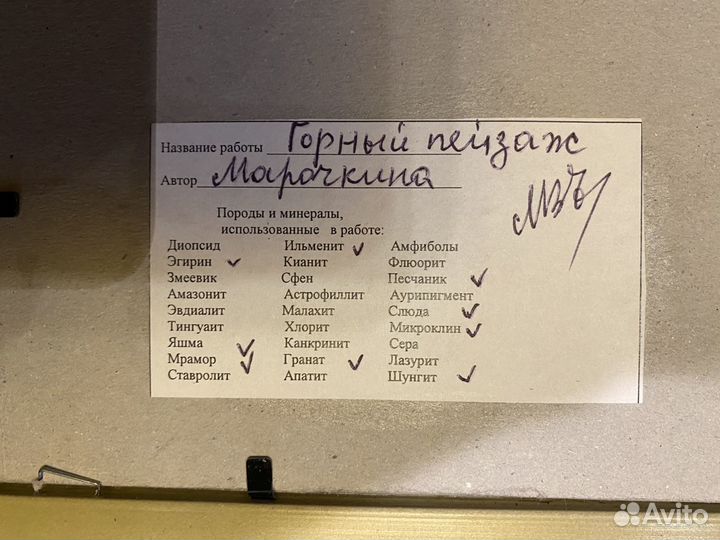 Название работы Горный пейзаж
Автор Марочкина
Породы и минералы,
использованные в работе:
Диопсид Ильменит ✓ Амфиболы
Эгирин ✓ Кианит Флюорит
Змеевик Сфен Песчаник ✓
Амазонит Астрофиллит Аурипигмент
Эвдиалит Малахит Слюда ✓
Тингуаит Хлорит Микроклин ✓
Яшма ✓ Канкринит Сера
Мрамор ✓ Гранат ✓ Лазурит
Ставролит ✓ Апатит Шунгит ✓
Avito